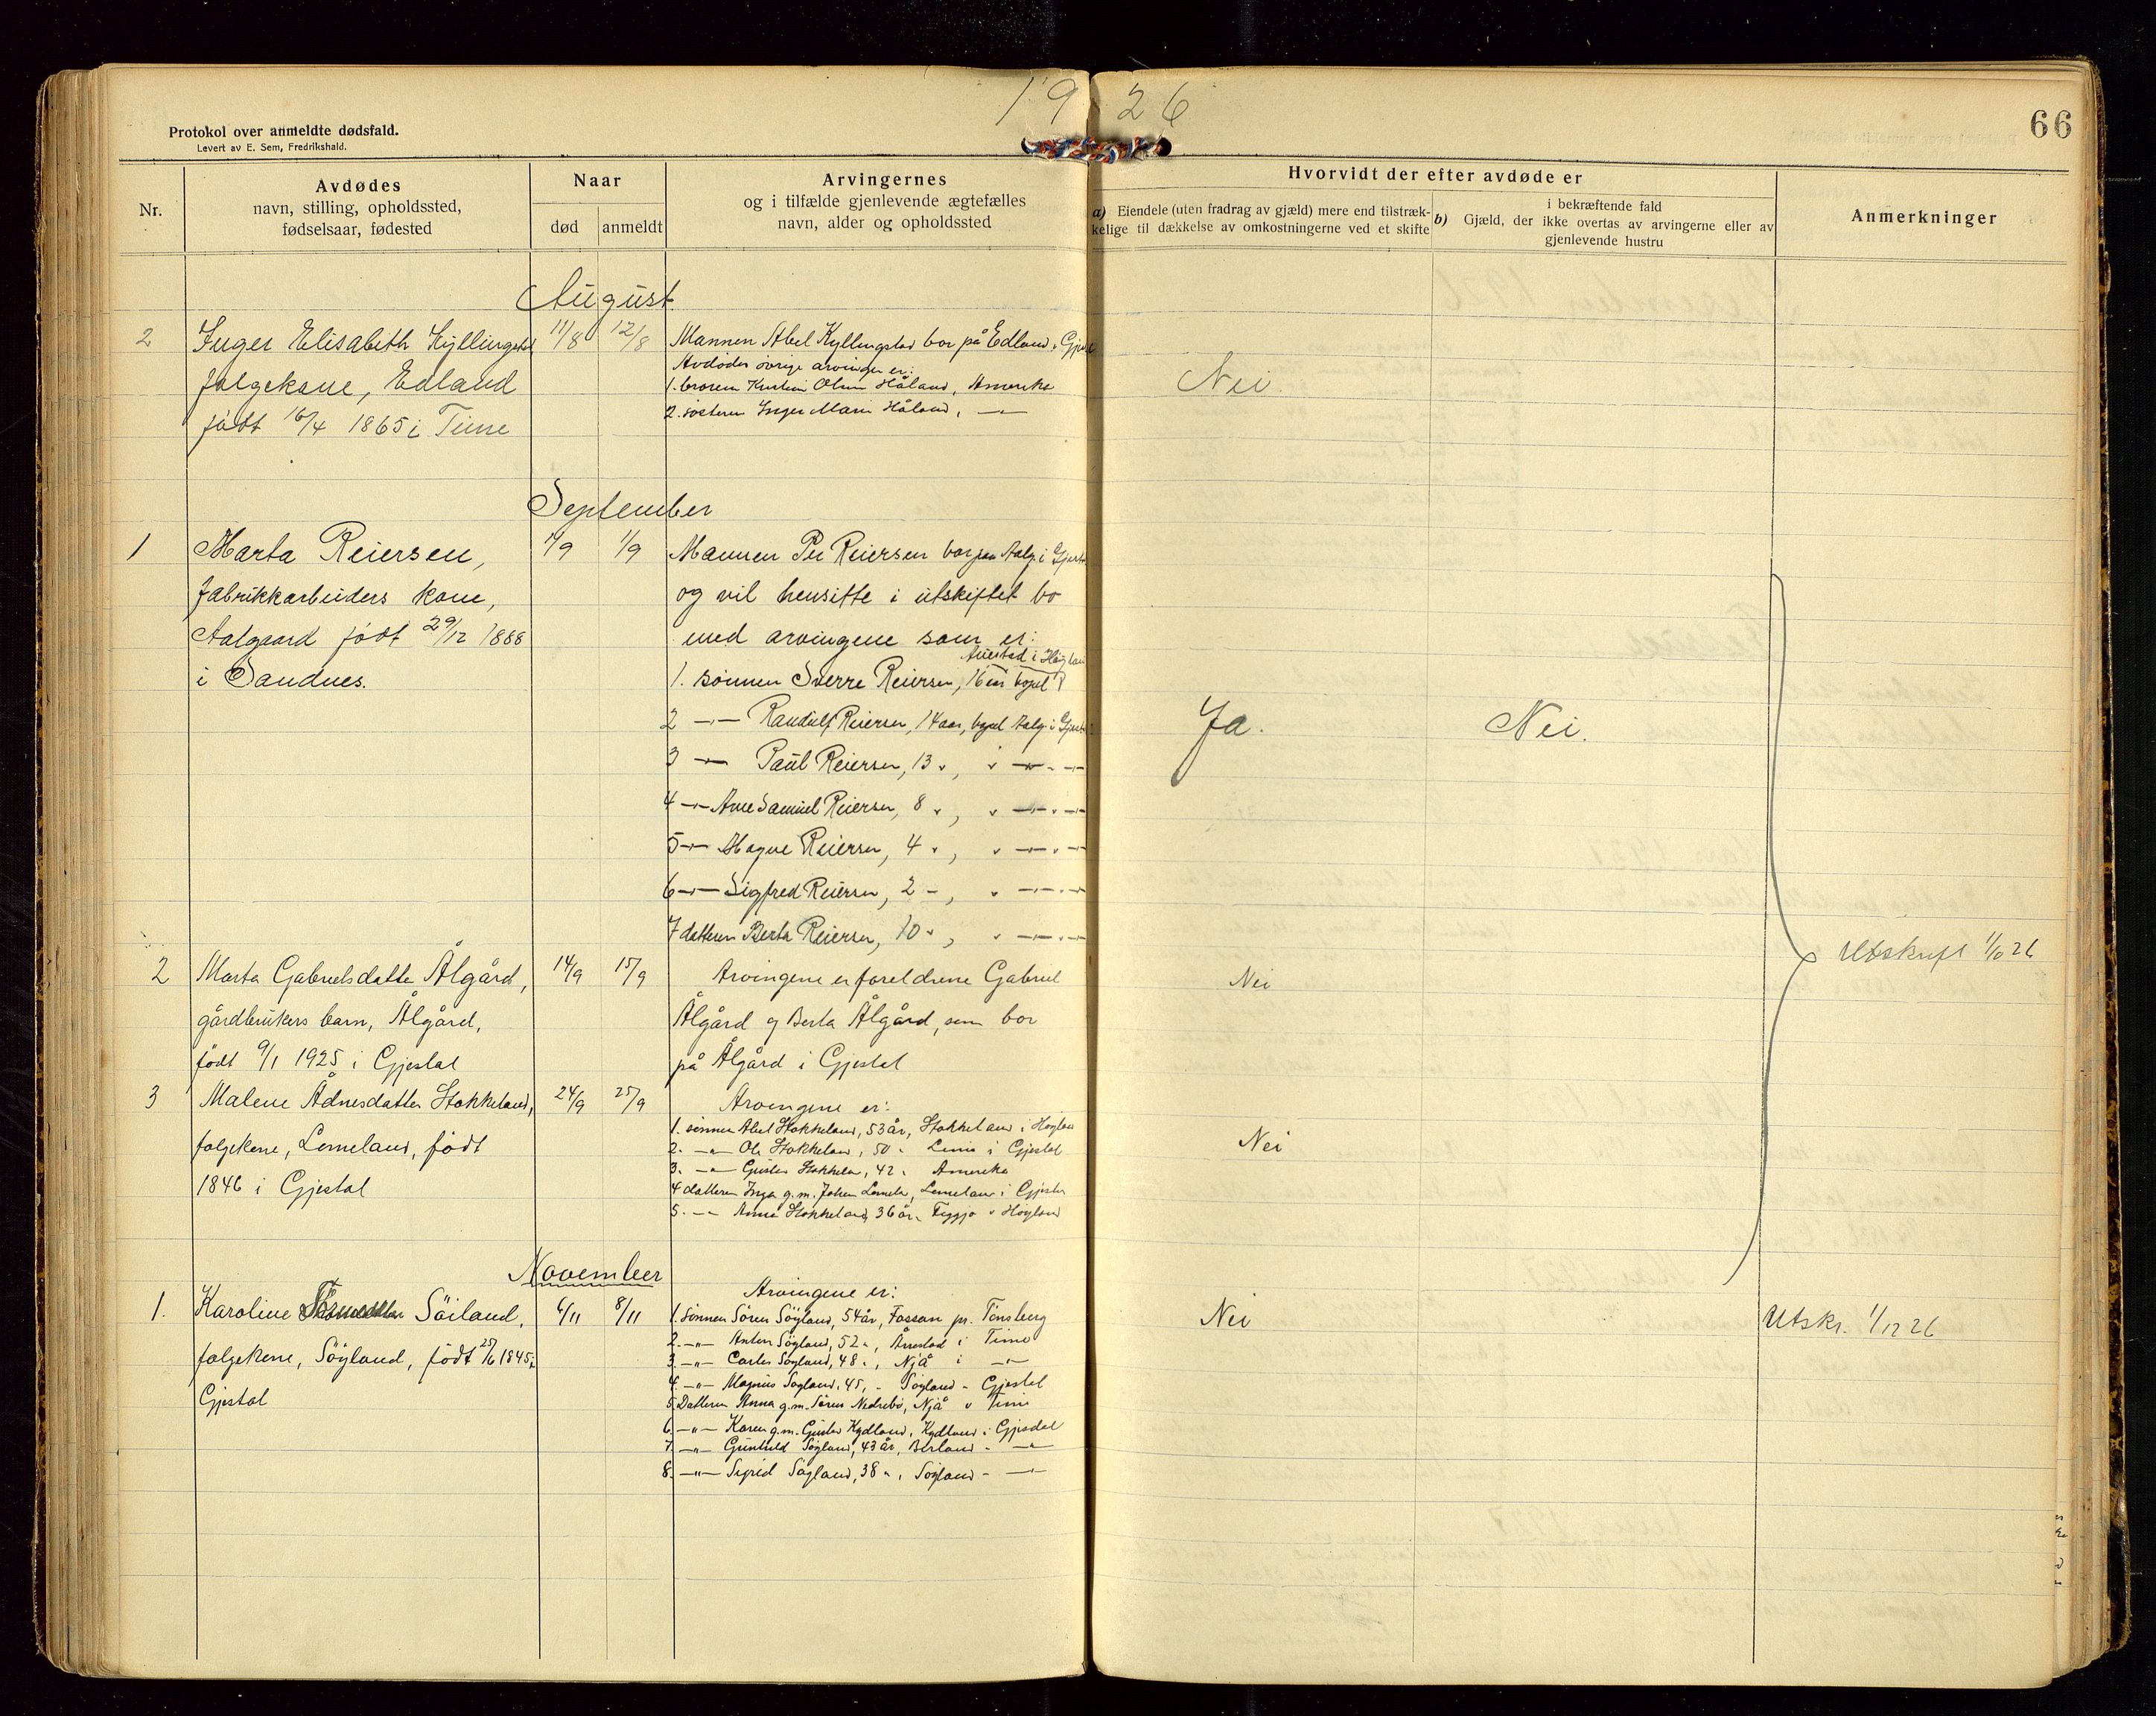 1926
66
Protokol over anmeldte dødsfald.
Levert av E. Sem, Fredrikshald.
Nr.
Avdødes
navn, stilling, opholdssted,
fødselsaar, fødested
Naar
død
anmeldt
Arvingernes
og i tilfælde gjenlevende ægtefælles
navn, alder og opholdssted
Hvorvidt der efter avdøde er
a) Eiendele (uten fradrag av gjæld) mere end tilstræk-
kelige til dækkelse av omkostningerne ved et skifte
b) Gjæld, der i bekræftende fald
ikke overtas av arvingerne eller av
gjenlevende hustru
Anmerkninger
August
2
Inger Elisabeth Kyllingstad
folgekone, Edland
født 16/4 1865 i Time
11/8
12/8
Mannen Abel Kyllingstad bor på Edland i Gjestal
Avdødes øvrige arvinger er:
1. broren Kristian Olsen Håland, Amerika
2. søsteren Inger Marie Håland, —"—
Nei.
September
1
Marta Reiersen,
fabrikkarbeiders kone,
Aalgaard født 29/12 1888
i Sandnes.
1/9
1/9
Mannen Per Reiersen bor paa Aalg. i Gjestal
og vil hensitte i utskiftet bo
med arvingene som er:
Auestad i Høyland
1. sønnen Sverre Reiersen, 16 aar bopel
2 —"— Randulf Reiersen, 14 aar, bopel Aalg. i Gjestal
3 —"— Paul Reiersen, 13 ", " —"— " —
4 —"— Arne Samuel Reiersen, 8 ", " —"— " —
5 —"— Magne Reiersen, 4 ", " —"— " —
6 —"— Sigfred Reiersen, 2 –, " —"— " —
7 datteren Berta Reiersen, 10 ", " —"— " —
Ja.
Nei.
2
Marta Gabrielsdatter Ålgård,
gårdbrukers barn, Ålgård,
født 9/1 1925 i Gjestal
14/9
15/9
Arvingene er foreldrene Gabriel
Ålgård og Berta Ålgård, som bor
på Ålgård i Gjestal
Nei
Utskrift 1/10 26
3
Malene Ådnesdatter Stokkeland,
folgekone, Lemeland, født
1846 i Gjestal
24/9
25/9
Arvingene er:
1. sønnen Abel Stokkeland, 53 år, Stokkeland i Høyland
2. —"— Ole Stokkeland, 50 " i Gjestal
3. —"— Gustav Stokkelan, 42 " Amerika
4 datteren Inga g. m. Johan Lemela, Lemeland i Gjestal
5. —"— Anna Stokkeland 36 år, Figgjo " Høyland
Nei
November
1.
Karoline Söiland,
folgekone, Söyland, født 25/6 1845 i
Gjestal
6/11
8/11
Arvingene er:
1. Sönnen Sören Söyland, 54 år, Fossan pr. Tönsberg
2. —"— Anton Söyland, 52 ", Årrestad i Time
3. —"— Carles Söyland, 48 ", Njå i —"—
4. —"— Magnus Søyland, 45, " Söyland – Gjestal
5. Datteren Anna g. m. Sören Nedrebö, Njå " Time
6. —"— Karen g. m. Gustav Kydland, Kydland i Gjesdal
7. —"— Gunhild Söyland, 43 år, Berland – —"—
8. —"— Sigrid Söyland, 38 ", Söyland – —"—
Nei
Utskr. 1/12 26